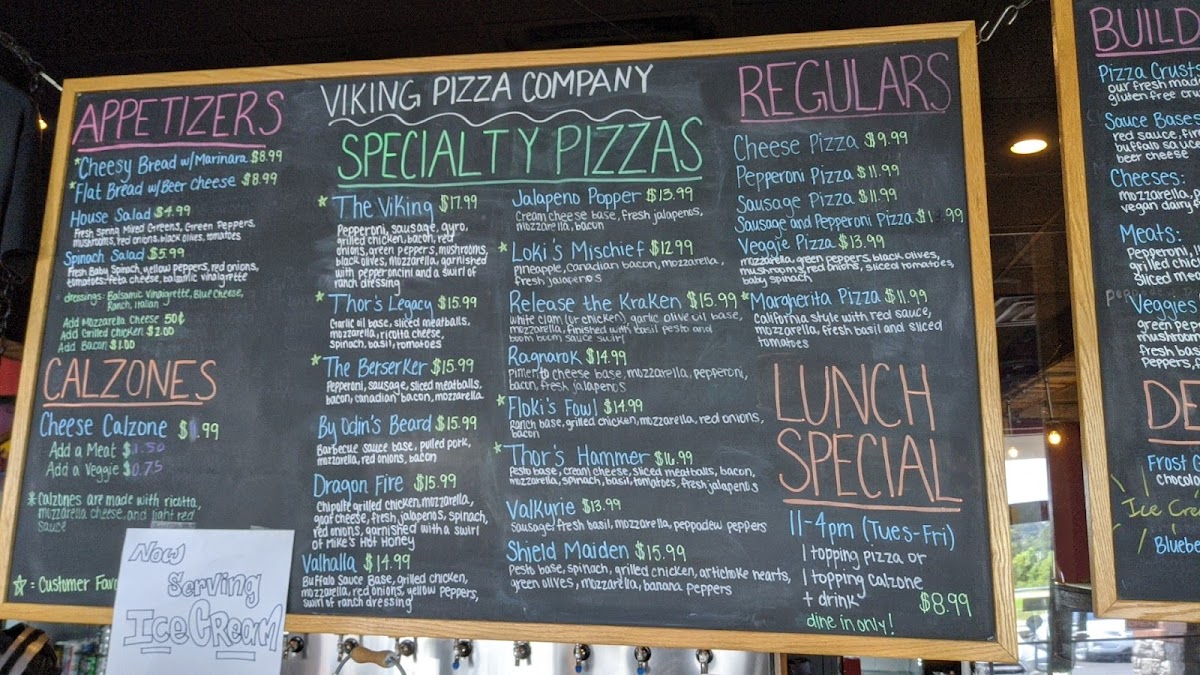 VIKING PIZZA COMPANY
APPETIZERS
*Cheesy Bread w/Marinara $8.99
*Flat Bread w/Beer Cheese $8.99
House Salad $4.99
Fresh Spring Mixed Greens, Green Peppers,
mushrooms, red onions, black olives, tomatoes
Spinach Salad $5.99
Fresh Baby Spinach, yellow peppers, red onions,
tomatoes, feta cheese, balsamic vinaigrette
dressings: Balsamic Vinaigrette, Blue Cheese,
Ranch, Italian
Add Mozzarella Cheese 50¢
Add Grilled Chicken $2.00
Add Bacon $1.00
CALZONES
Cheese Calzone
Add a Meat $1.50
Add a Veggie $0.75
*Calzones are made with ricotta,
mozzarella cheese, and light red
sauce
☆ = Customer
Now
Serving
Ice Cream
SPECIALTY PIZZAS
* The Viking $17.99
Pepperoni, sausage, gyro,
grilled chicken, bacon, red
onions, green peppers, mushrooms,
black olives, mozzarella, garnished
with pepperoncini and a swirl of
ranch dressing
* Thor's Legacy $15.99
Garlic oil base, sliced meatballs,
mozzarella, ricotta cheese,
spinach, basil, tomatoes
* The Berserker $15.99
Pepperoni, sausage, sliced meatballs,
bacon, canadian bacon, mozzarella
By Odin's Beard $15.99
Barbecue sauce base, pulled pork,
mozzarella, red onions, bacon
Dragon Fire $15.99
Chipotle grilled chicken, mozzarella,
goat cheese, fresh jalapenos, spinach,
red onions, garnished with a swirl
of Mike's Hot Honey
Valhalla $14.99
Buffalo Sauce Base, grilled chicken,
mozzarella, red onions, yellow peppers,
swirl of ranch dressing
Jalapeno Popper $13.99
Cream cheese base, fresh jalapenos,
mozzarella, bacon
* Loki's Mischief $12.99
pineapple, canadian bacon, mozzarella,
fresh jalapenos
Release the Kraken $15.99
white clam (or chicken) garlic olive oil base,
mozzarella, finished with basil pesto and
boom boom sauce swirl
Ragnarok $14.99
Pimento cheese base, mozzarella, pepperoni,
bacon, fresh jalapenos
* Floki's Fowl $14.99
Ranch base, grilled chicken, mozzarella, red onions,
bacon
* Thor's Hammer $16.99
Pesto base, cream cheese, sliced meatballs, bacon,
mozzarella, spinach, basil, tomatoes, fresh jalapenos
Valkurie $13.99
Sausage, fresh basil, mozzarella, peppadew peppers
Shield Maiden $15.99
pesto base, spinach, grilled chicken, artichoke hearts,
green olives, mozzarella, banana peppers
REGULARS
Cheese Pizza $9.99
Pepperoni Pizza $11.99
Sausage Pizza $11.99
Sausage and Pepperoni Pizza
Veggie Pizza $13.99
mozzarella, green peppers, black olives,
mushrooms, red onions, sliced tomatoes,
baby spinach
*Margherita Pizza $11.99
California style with red sauce,
mozzarella, fresh basil and sliced
tomatoes
LUNCH
SPECIAL
11-4pm (Tues-Fri)
1 topping pizza or
1 topping calzone
+ drink $8.99
dine in only!
BUILD
Pizza Crusts
our fresh
gluten free
Sauce Bases
red sauce,
buffalo
beer cheese
Cheeses:
mozzarella
vegan dairy
Meats:
Pepperoni
grilled
sliced
Veggies
green
mushroom
fresh
Peppers,
DE
Frost
Ice